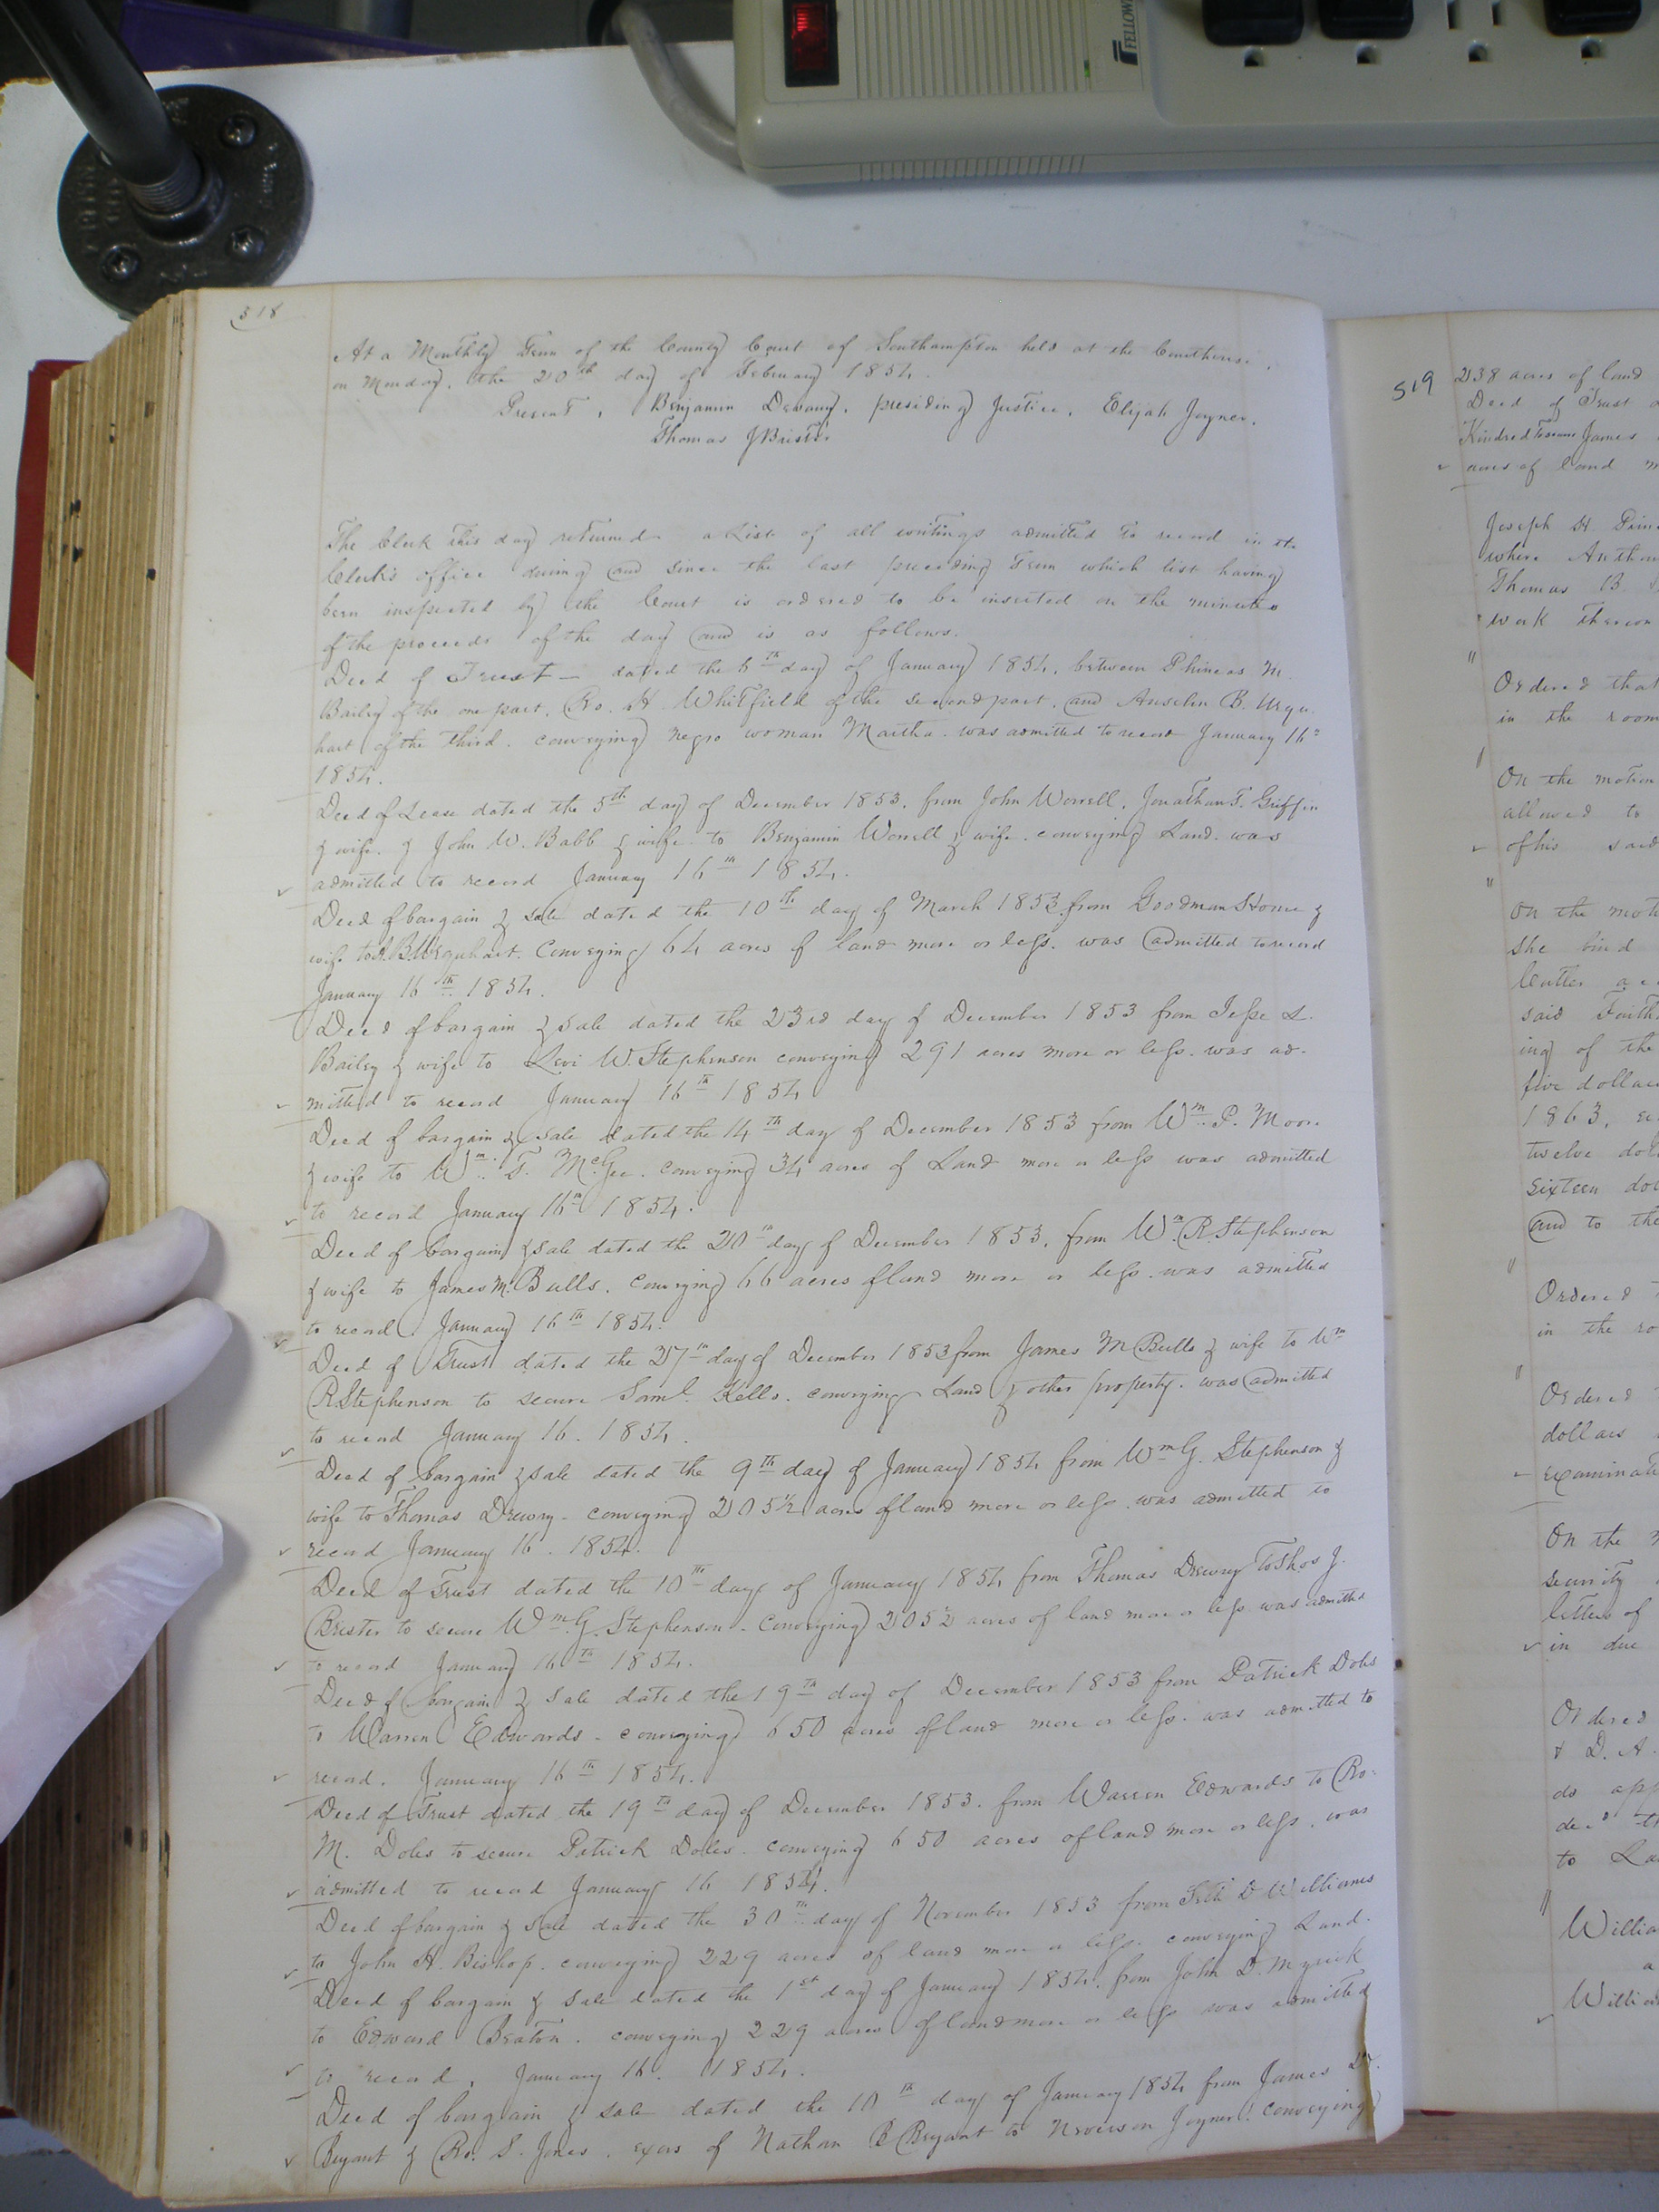 FELLOWE
518
At a Monthly Term of the County Court of Southampton held at the Courthouse.
on Monday, the 20th day of February 1854.
Present, Benjamin Devany, presiding Justice, Elijah Joyner,
Thomas J Brister
The Clerk this day returned a List of all writings admitted to record in the
Clerk's office during and since the last preceding Term which list having
been inspected by the Court is ordered to be inserted on the minutes
of the proceeds of the day and is as follows.
Deed of Trust - dated the 6th day of January 1854, between Phineas M.
Bailey of the one part, Ro. H. Whitfield of the second part, and Anselin B. Urqu
hart of the third. conveying negro woman Martha. was admitted to record January 16th
1854.
Deed of Lease dated the 5th day of December 1853, from John Worrell, Jonathan T. Griffin
& wife. & John W. Babb & wife to Benjamin Worrell & wife. conveying Land. was
admitted to record January 16th 1854.
Deed of bargain & sale dated the 10th day of March 1853 from Goodman Stone &
wife to A.B. Urquhart. Conveying 64 acres of land more or less. was admitted to record
January 16th 1854.
Deed of bargain & sale dated the 23rd day of December 1853 from Jesse L.
Bailey & wife to Levi W. Stephenson conveying 291 acres more or less. was ad-
mitted to record January 16th 1854
Deed of bargain & sale dated the 14th day of December 1853 from Wm. P. Moore
& wife to Wm. T. McGee. conveying 34 acres of Land more or less was admitted
to record January 16th 1854.
Deed of bargain & sale dated the 20th day of December 1853, from Wm. R. Stephenson
& wife to James M. Bulls. conveying 66 acres of land more or less. was admitted
to record January 16th 1854.
Deed of Trust dated the 27th day of December 1853 from James M Bulls & wife to Wm
R. Stephenson to secure Saml. Kello. conveying Land & other property. was admitted
to record January 16. 1854.
Deed of bargain & sale dated the 9th day of January 1854 from Wm G. Stephenson &
wife to Thomas Drewry - conveying 205½ acres of land more or less. was admitted to
record January 16. 1854.
Deed of Trust dated the 10th day of January 1854 from Thomas Drewry to Thos J.
Brister to secure Wm. G. Stephenson - Conveying 205½ acres of land more or less was admitted
to record January 16th 1854.
Deed of bargain & sale dated the 19th day of December 1853 from Patrick Doles
to Warren Edwards - conveying 650 acres of land more or less. was admitted to
record. January 16th 1854.
Deed of Trust dated the 19th day of December 1853. from Warren Edwards to Ro.
M. Doles to secure Patrick Doles. conveying 650 acres of land more or less. was
admitted to record January 16 1854.
Deed of bargain & sale dated the 30th day of November 1853 from Seth D Williams
to John H. Bishop. conveying 229 acres of land more or less. conveying Land.
Deed of bargain & sale dated the 1st day of January 1854. from John D. Myrick
to Edward Beaton. conveying 229 acres of land more or less was admitted
to record. January 16. 1854.
Deed of bargain & sale dated the 10th day of January 1854 from James D.
Bryant & Ro. S. Jones. exors of Nathan B Bryant to Neverson Joyner. conveying
519
238 acres of land
Deed of Trust
Kindred James
acres of land
Joseph H. Prin
where Antho
Thomas B.
work thereon
Ordered that
in the room
On the motion
allowed to
of his said
On the mot
she bind
Cutler
said Faith
ing of the
five dollar
1863,
twelve dol
Sixteen dol
and to the
Ordered
in the ro
Ordered
dollars
examinat
On the
security
letters of
in due
Ordered
& D. A.
do app
to La
Willia
Willia